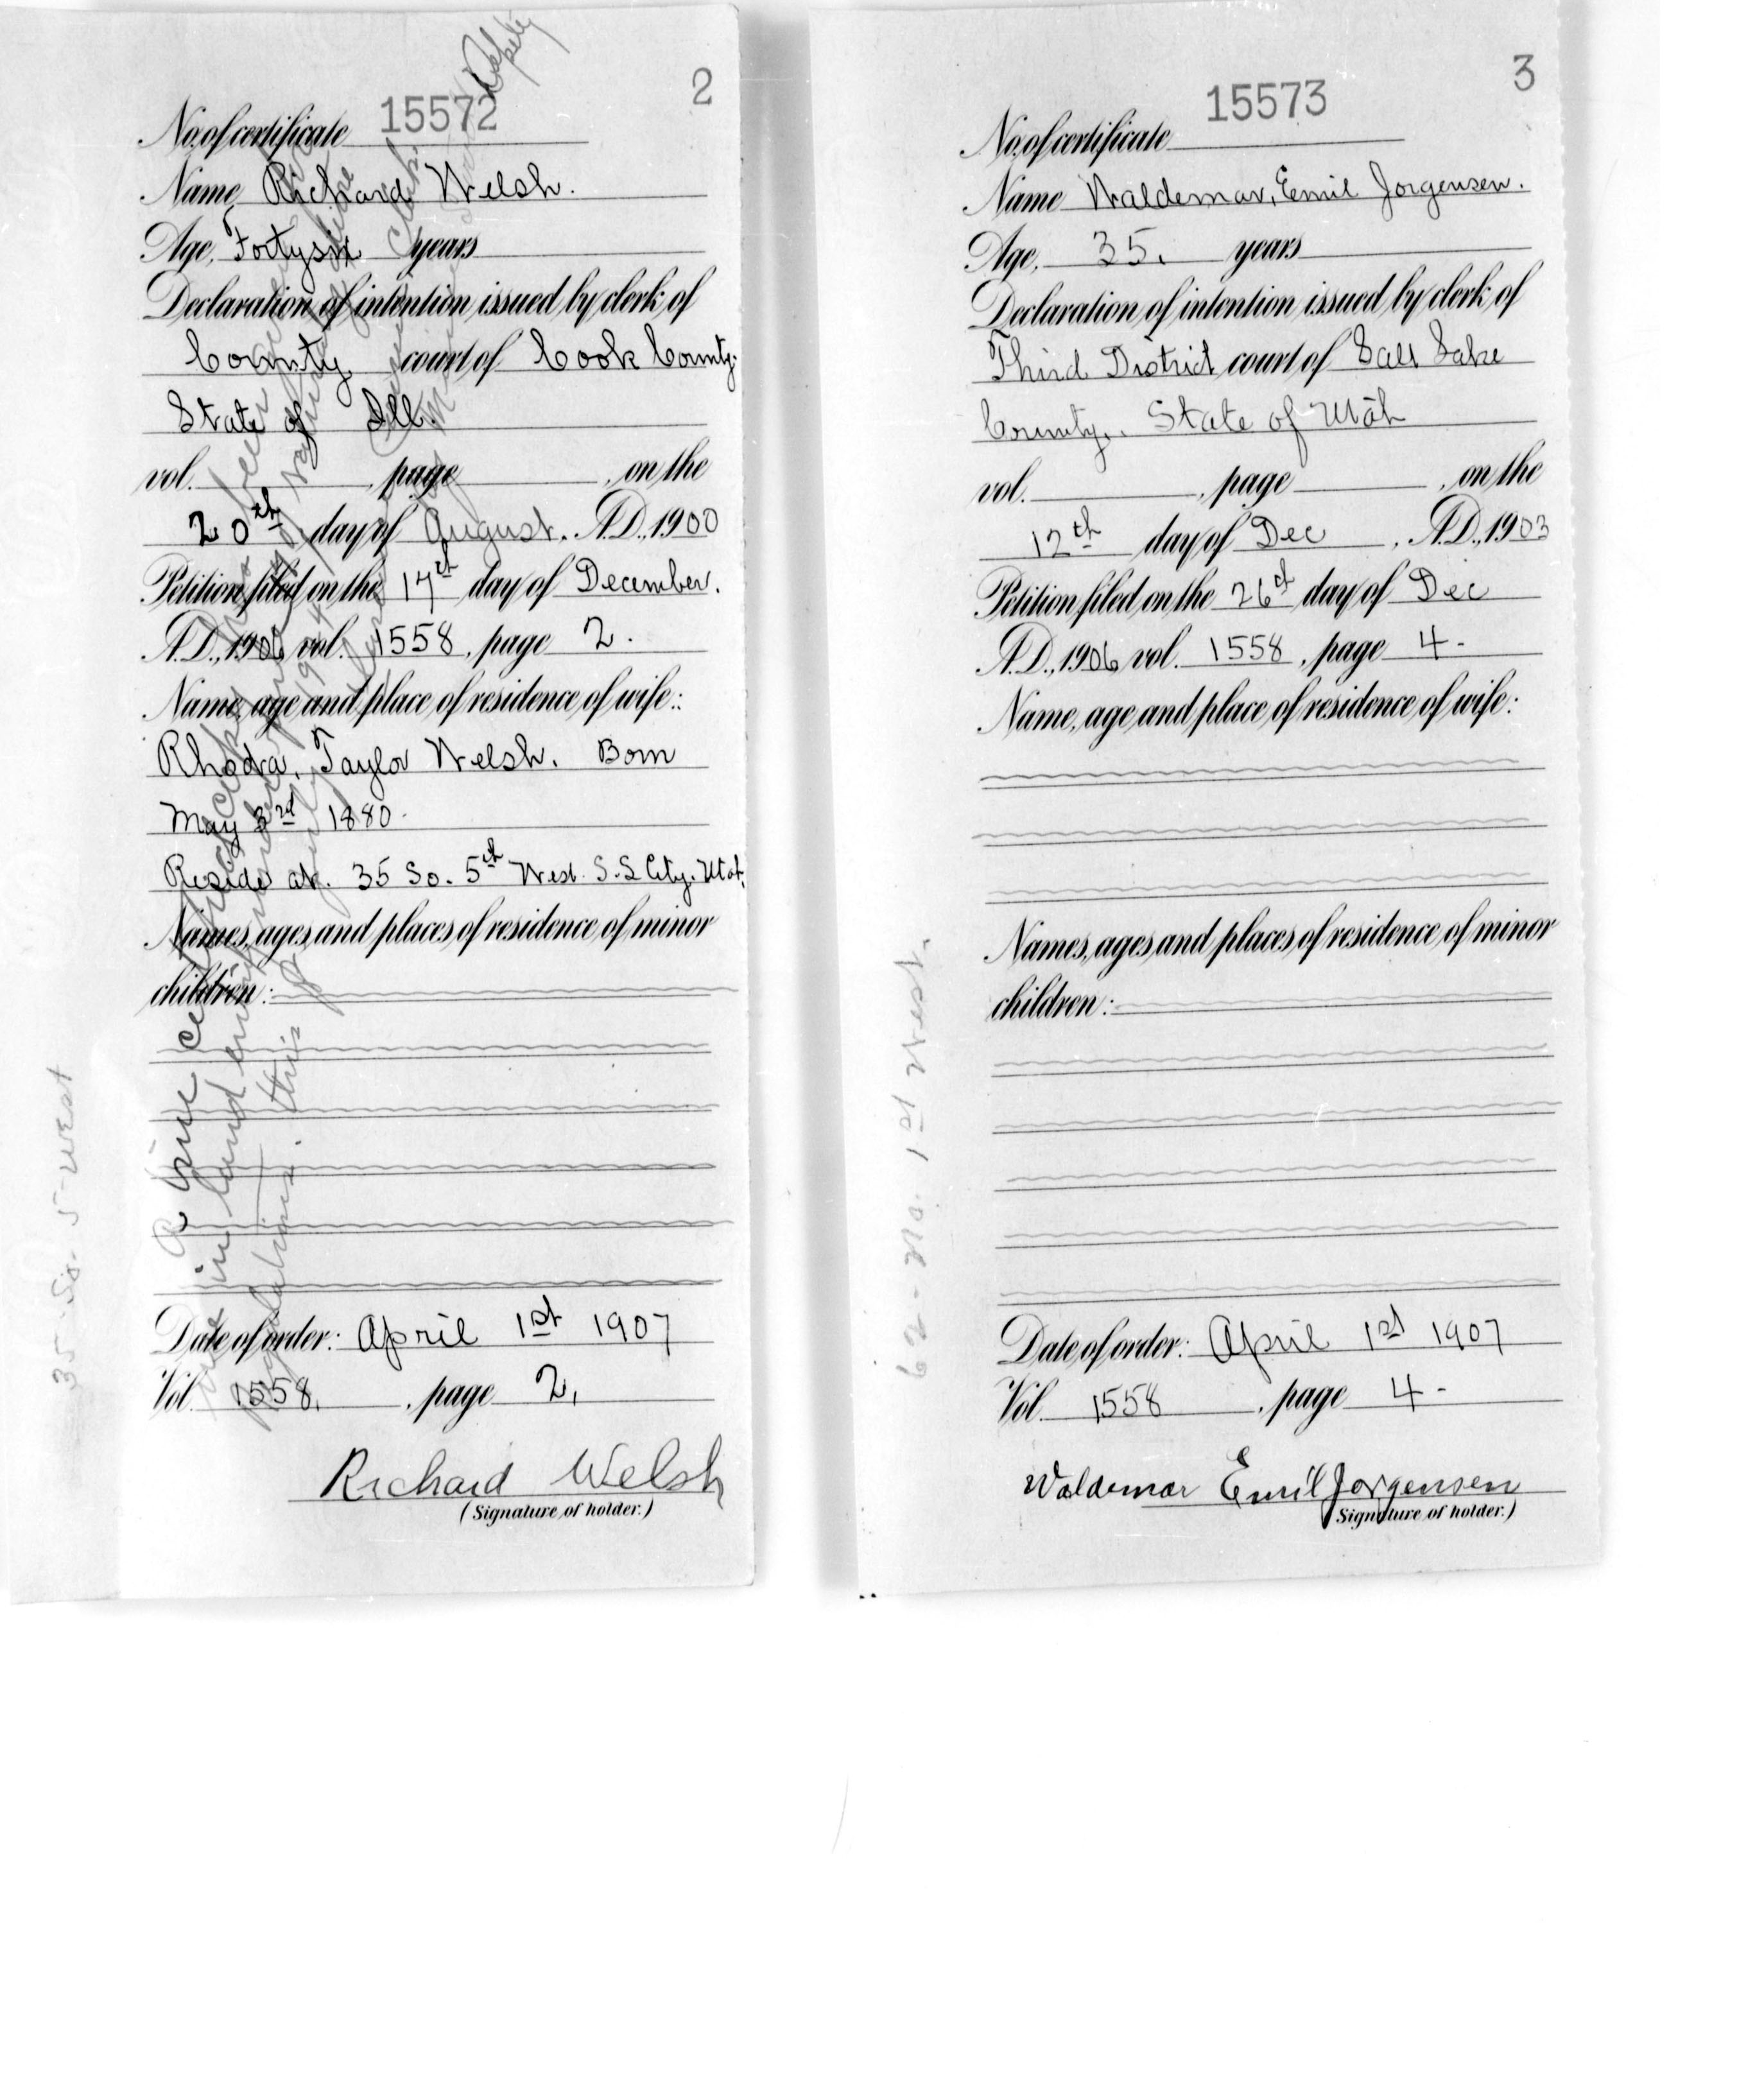 2
No. of certificate 15572
Name Richard Welsh.
Age, Fortysix years
Declaration of intention issued by clerk of
County court of Cook County.
State of Ill.
vol. , page , on the
20th day of August. A.D., 1900
Petition filed on the 17th day of December.
A.D., 1906 vol. 1558, page 2.
Name, age and place of residence of wife:
Rhoda, Taylor Welsh. Born
May 3rd 1880.
Reside at. 35 So. 5th West. S.L City. Utah.
Names, ages, and places of residence of minor
children:
Date of order: April 1st 1907
Vol. 1558. , page 2,
Richard Welsh
(Signature of holder.)
35 - So. 5 - West
3
No. of certificate 15573
Name Waldemar, Emil Jorgensen.
Age, 35. years
Declaration of intention issued by clerk of
Third District court of Salt Lake
County,. State of Utah
vol. , page , on the
12th day of Dec , A.D., 1903
Petition filed on the 26th day of Dec
A.D., 1906 vol. 1558, page 4-
Name, age and place of residence of wife:
Names, ages and places of residence of minor
children:
Date of order: April 1st 1907
Vol. 1558 , page 4-
Waldemar Emil Jorgensen
(Signature of holder.)
62 - No. 1st West.